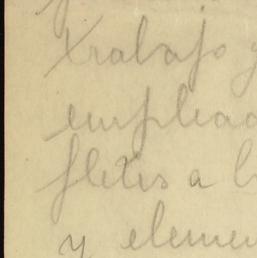 trabajo y
emplead
fletes a b
y elemen